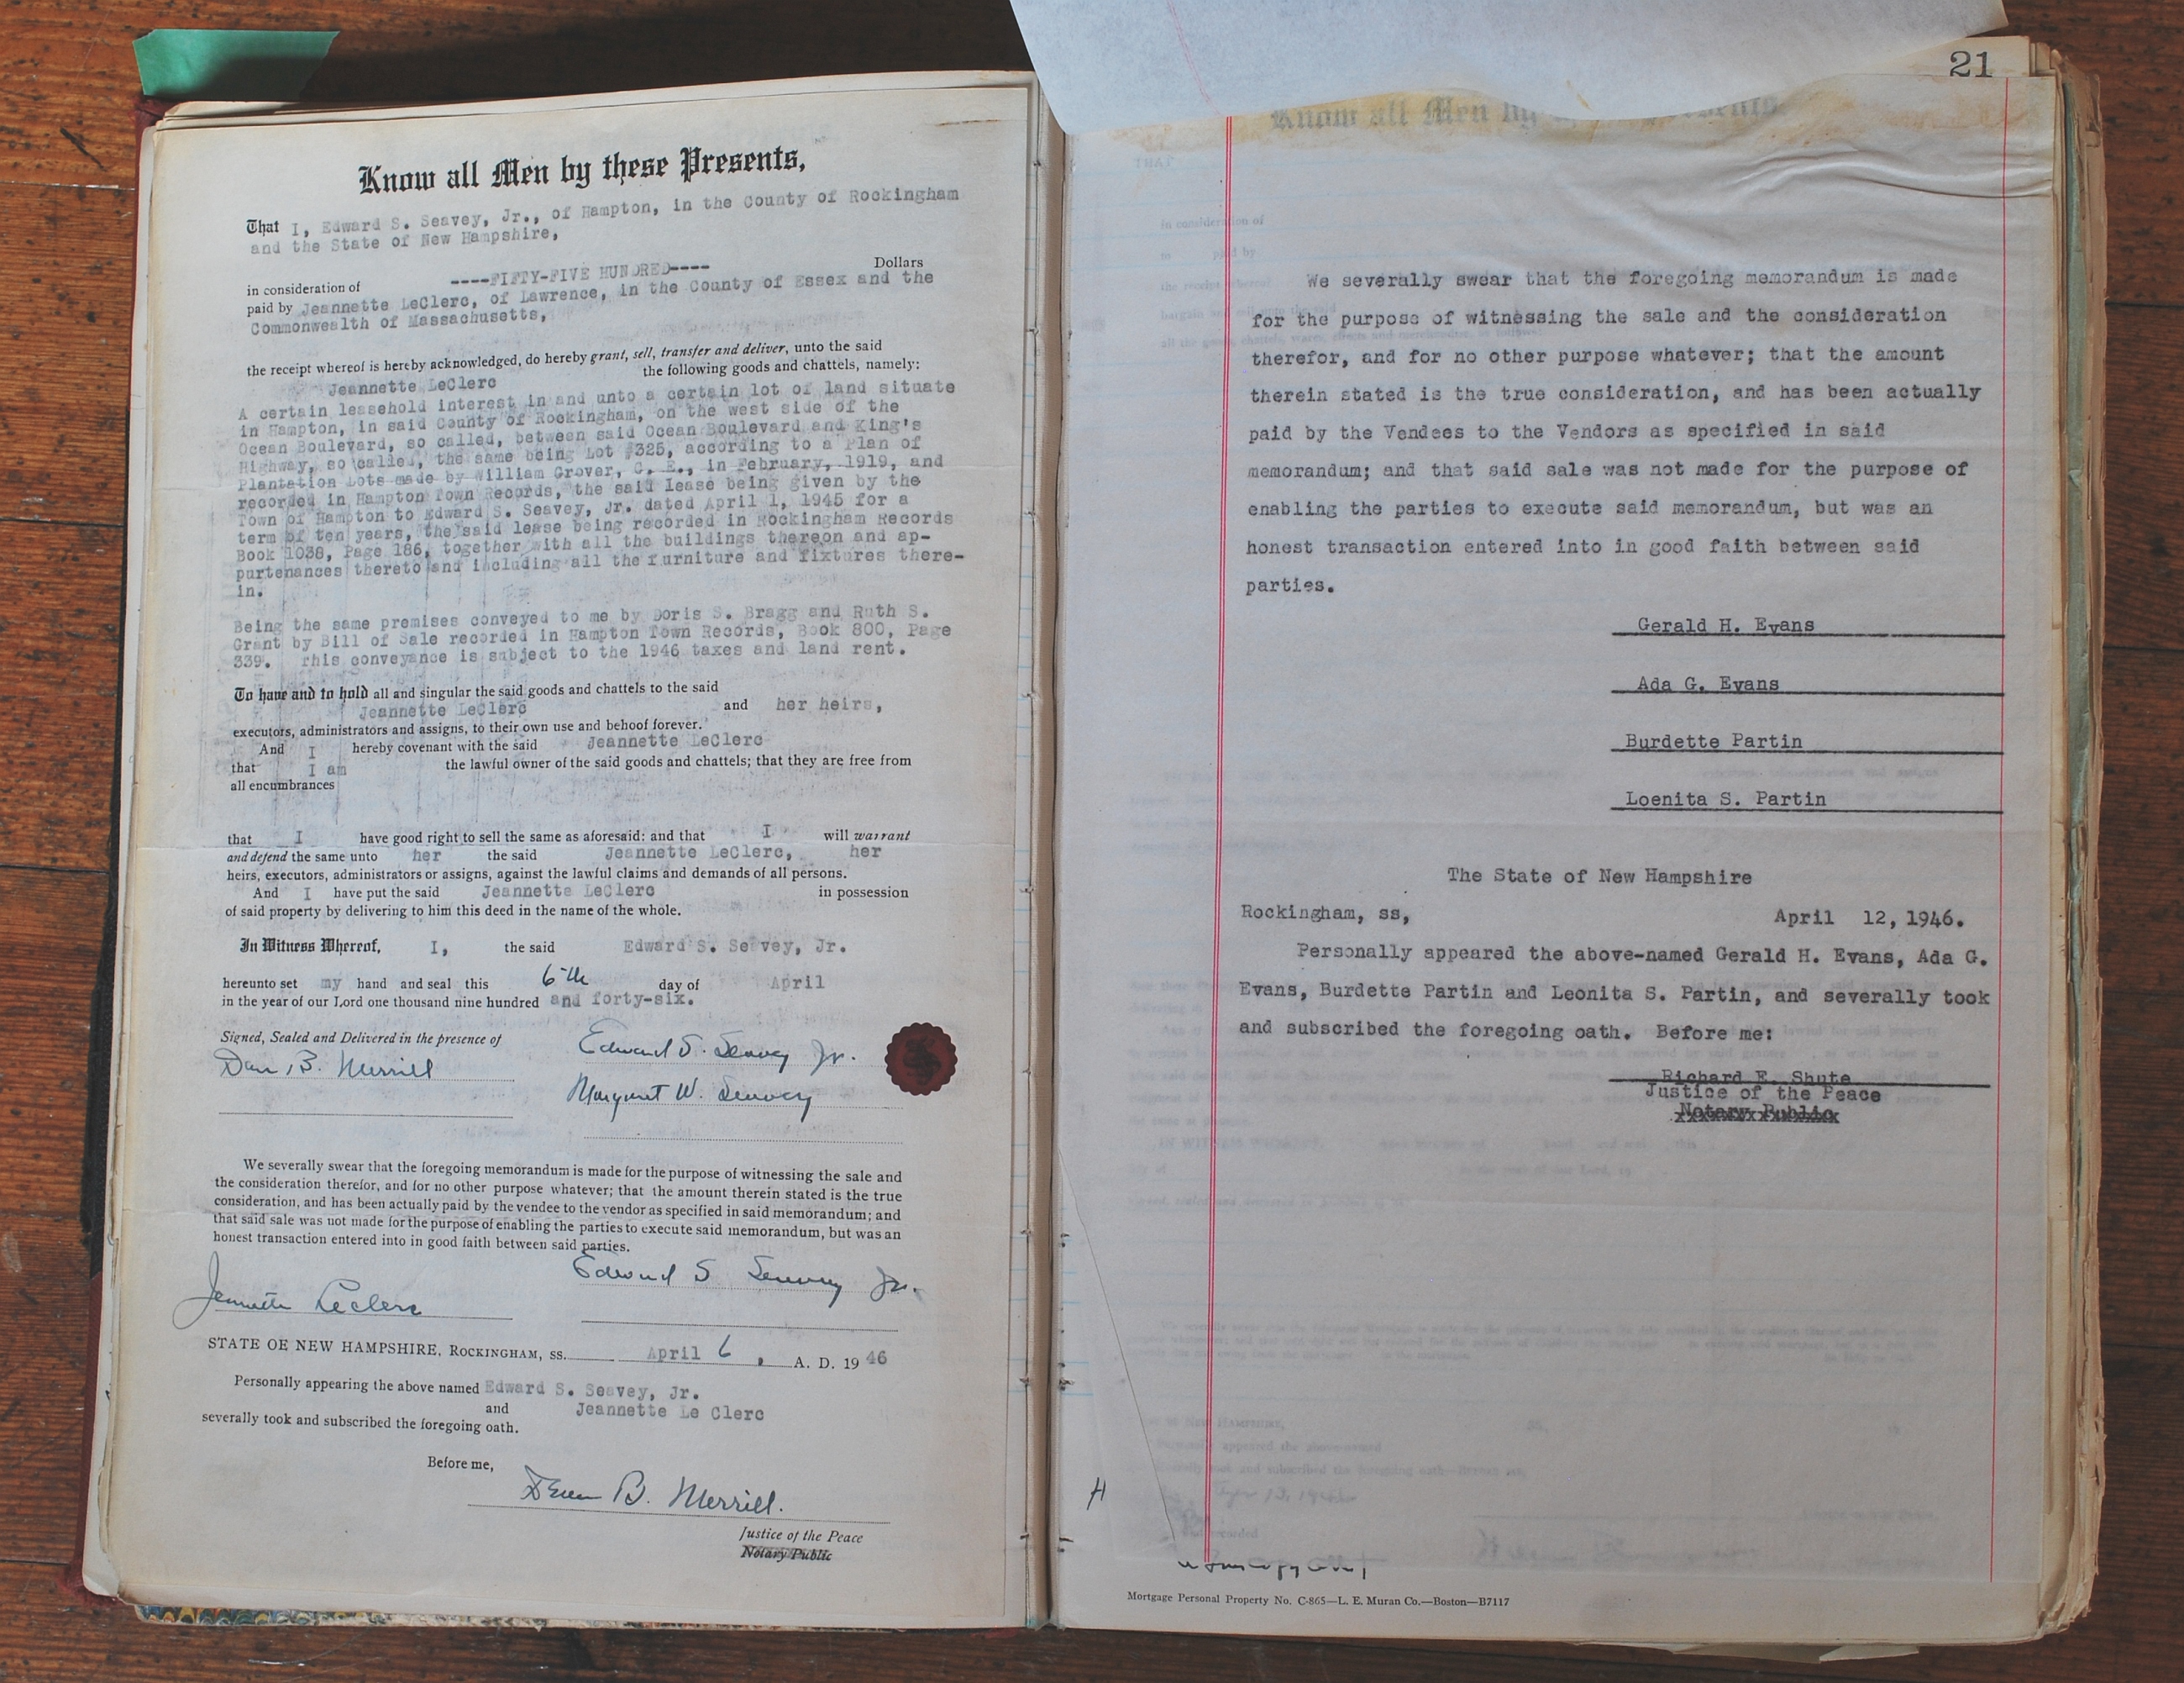 Know all Men by these Presents,
That I, Edward S. Seavey, Jr., of Hampton, in the County of Rockingham
and the State of New Hampshire,
in consideration of ----FIFTY-FIVE HUNDRED---- Dollars
paid by Jeannette LeClerc, of Lawrence, in the County of Essex and the
Commonwealth of Massachusetts,
the receipt whereof is hereby acknowledged, do hereby grant, sell, transfer and deliver, unto the said
Jeannette LeClerc the following goods and chattels, namely:
A certain leasehold interest in and unto a certain lot of land situate
in Hampton, in said County of Rockingham, on the west side of the
Ocean Boulevard, so called, between said Ocean Boulevard and King's
Highway, so called, the same being Lot #325, according to a Plan of
Plantation Lots made by William Grover, C. E., in February, 1919, and
recorded in Hampton Town Records, the said lease being given by the
Town of Hampton to Edward S. Seavey, Jr. dated April 1, 1945 for a
term of ten years, the said lease being recorded in Rockingham Records
Book 1038, Page 186, together with all the buildings thereon and ap-
purtenances thereto and including all the furniture and fixtures there-
in.
Being the same premises conveyed to me by Doris S. Bragg and Ruth S.
Grant by Bill of Sale recorded in Hampton Town Records, Book 800, Page
339. This conveyance is subject to the 1946 taxes and land rent.
To have and to hold all and singular the said goods and chattels to the said
Jeannette LeClerc and her heirs,
executors, administrators and assigns, to their own use and behoof forever.
And I hereby covenant with the said Jeannette LeClerc
that I am the lawful owner of the said goods and chattels; that they are free from
all encumbrances
that I have good right to sell the same as aforesaid; and that I will warrant
and defend the same unto her the said Jeannette LeClerc, her
heirs, executors, administrators or assigns, against the lawful claims and demands of all persons.
And I have put the said Jeannette LeClerc in possession
of said property by delivering to him this deed in the name of the whole.
In Witness Whereof, I, the said Edward S. Seavey, Jr.
hereunto set my hand and seal this 6th day of April
in the year of our Lord one thousand nine hundred and forty-six.
Signed, Sealed and Delivered in the presence of
Dean B. Merrill Edward S. Seavey Jr.
Margaret W. Seavey
We severally swear that the foregoing memorandum is made for the purpose of witnessing the sale and
the consideration therefor, and for no other purpose whatever; that the amount therein stated is the true
consideration, and has been actually paid by the vendee to the vendor as specified in said memorandum; and
that said sale was not made for the purpose of enabling the parties to execute said memorandum, but was an
honest transaction entered into in good faith between said parties.
Edward S Seavey Jr.
Jeannette Leclerc
STATE OF NEW HAMPSHIRE, ROCKINGHAM, SS. April 6, A. D. 1946
Personally appearing the above named Edward S. Seavey, Jr.
and Jeannette Le Clerc
severally took and subscribed the foregoing oath.
Before me,
Dean B. Merrill.
Justice of the Peace
Notary Public
21
Know all Men by these Presents
We severally swear that the foregoing memorandum is made
for the purpose of witnessing the sale and the consideration
therefor, and for no other purpose whatever; that the amount
therein stated is the true consideration, and has been actually
paid by the Vendees to the Vendors as specified in said
memorandum; and that said sale was not made for the purpose of
enabling the parties to execute said memorandum, but was an
honest transaction entered into in good faith between said
parties.
Gerald H. Evans
Ada G. Evans
Burdette Partin
Loenita S. Partin
The State of New Hampshire
Rockingham, ss, April 12, 1946.
Personally appeared the above-named Gerald H. Evans, Ada G.
Evans, Burdette Partin and Leonita S. Partin, and severally took
and subscribed the foregoing oath. Before me:
Richard E. Shute
Justice of the Peace
Notary Public
Mortgage Personal Property No. C-865—L. E. Muran Co.—Boston—B7117